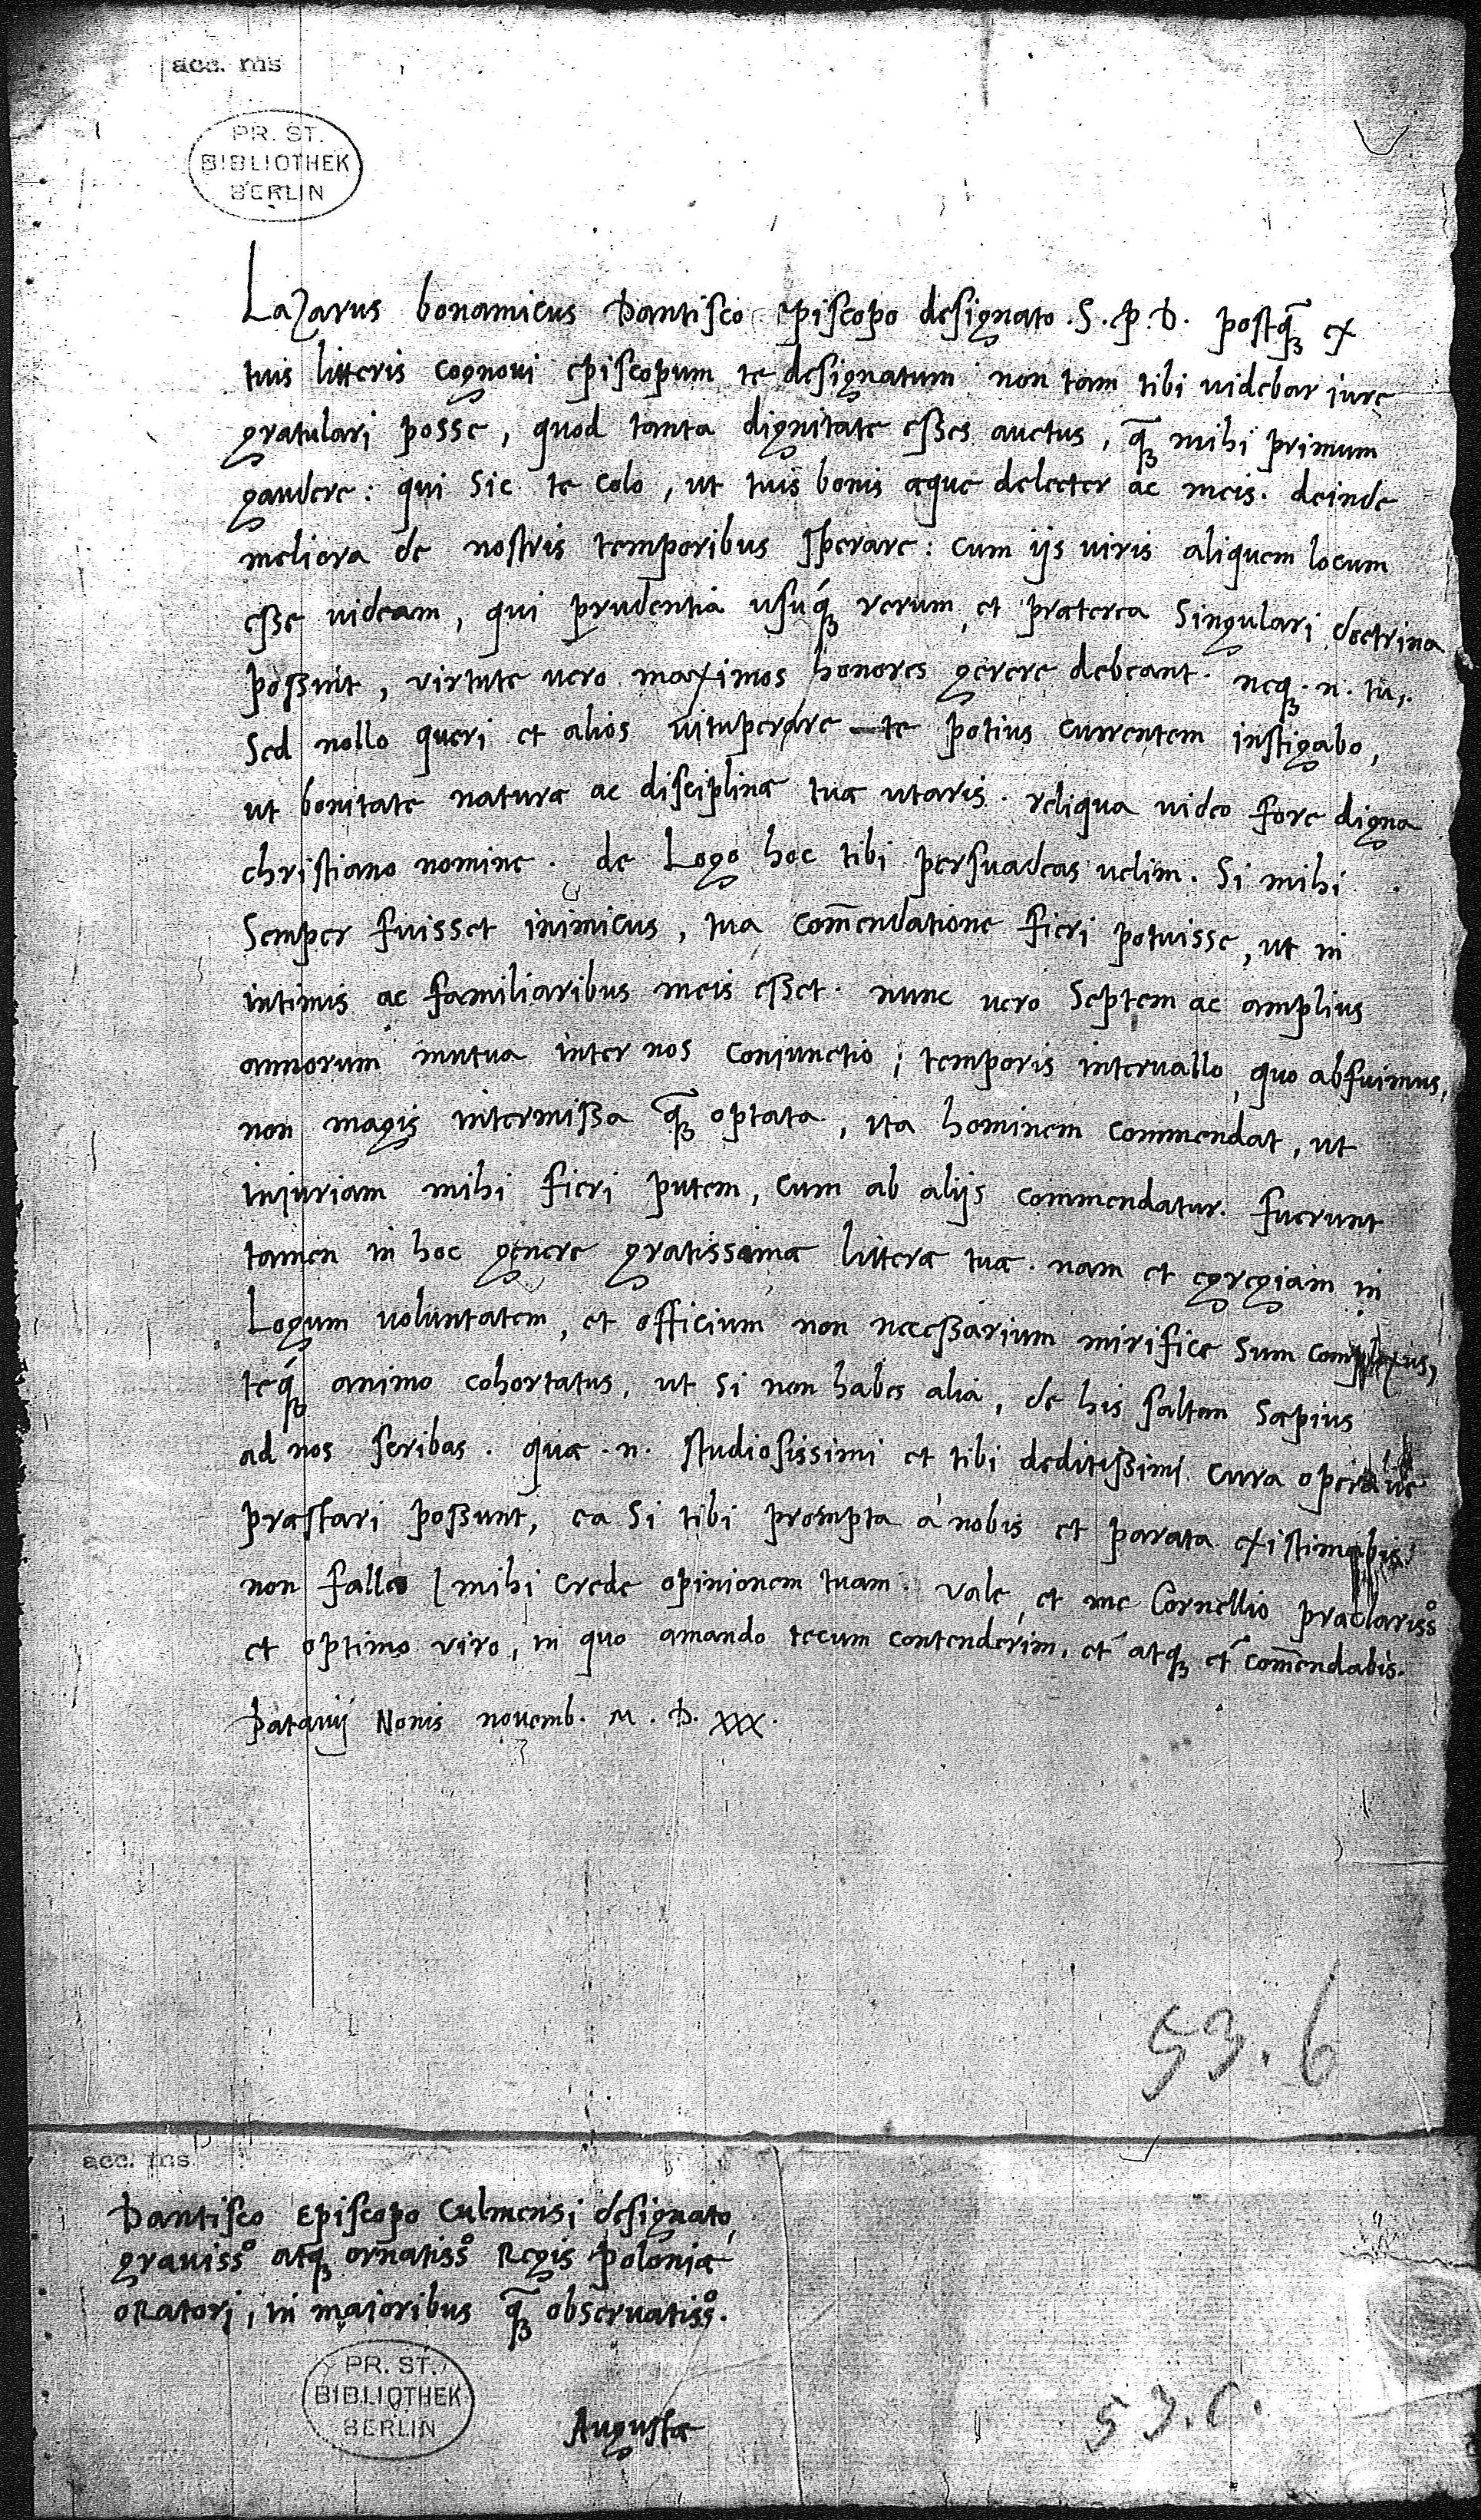 acc. ms
PR. ST.
BIBLIOTHEK
BERLIN
Lazarus bonamicus Dantisco episcopo designato .S.P.D. postq̄ȝ ex
tuis litteris cognoui episcopum te designatum non tam tibi uidebar iure
gratulari posse, quod tanta dignitate esses auctus, q̄ȝ mihi primum
gaudere: qui sic te colo, ut tuis bonis æque delecter ac meis. deinde
meliora de nostris temporibus sperare: cum ijs uiris aliquem locum
esse uideam, qui prudentia usuq́ȝ rerum, et præterea singulari doctrina
possint, virtute uero maximos honores gerere debeant. neqȝ .n. tu,.
Sed nollo queri et alios uituperare te potius currentem instigabo,
ut bonitate naturæ ac disciplinæ tuæ utaris. reliqua uideo fore digna
christiano nomine. de Logo hoc tibi persuadeas uelim. Si mihi
semper fuisset inimicus, tua com̄endatione fieri potuisse, ut in
intimis ac familiaribus meis esset. nunc uero septem ac amplius
annorum mutua inter nos conjunctio, temporis interuallo, quo abfuimus,
non magis intermissa q̄ȝ optata, ita hominem commendat, ut
injuriam mihi fieri putem, cum ab alijs commendatur. fuerunt
tamen in hoc genere gratissimæ litteræ tuæ. nam et egregiam in
Logum uoluntatem, et officium non necessarium mirifice sum complexus,
teq́ȝ animo cohortatus, ut si non habes alia, de his saltem sæpius
ad nos scribas. quæ .n. studiosissimi et tibi deditissimi cura operaue
præstari possunt, ea si tibi prompta à nobis et parata existimabis
non falles mihi crede opinionem tuam. vale, et me Cornellio præclarissº
et optimo viro, in quo amando tecum contenderim, et atqȝ et com̄endabis.
Patauij Nonis nouemb. M.D.XXX.
53.b
acc. ms
Dantisco Episcopo Culmensi designato,
grauissº atqȝ ornatissº Regis Poloniæ
oratori, in maioribus q̄ȝ obseruatissº.
PR. ST.
BIBLIOTHEK
BERLIN
Augustæ
53.c.